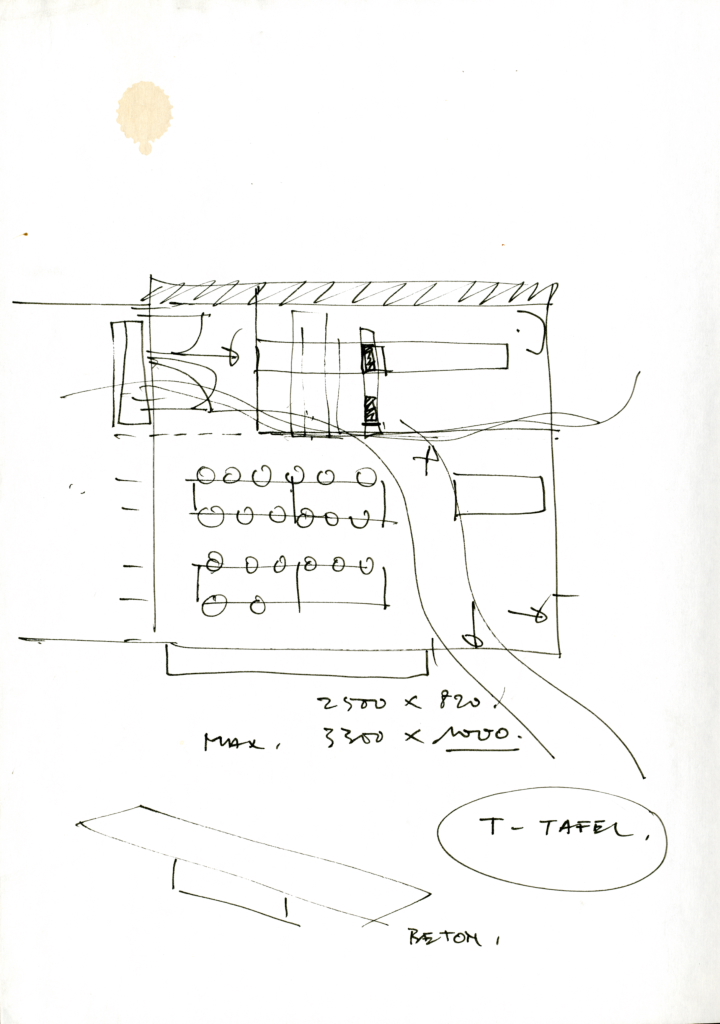 2500 x 820.
MAX. 3300 x 1000.
T - TAFEL.
BETON.